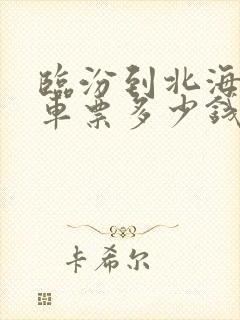 臨汾到北海
車票多少錢
卡希尔